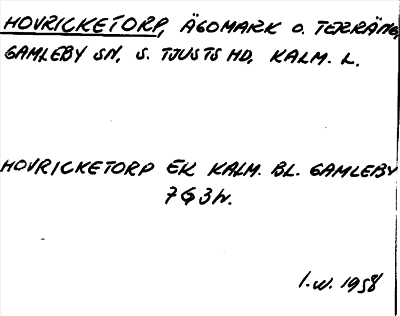 HOVRICKETORP, ÄGOMARK O. TERRÄNG,
GAMLEBY SN, S. TJUSTS HD, KALM. L.
HOVRICKETORP EK KALM. BL. GAMLEBY
7G3h.
I.W. 1958